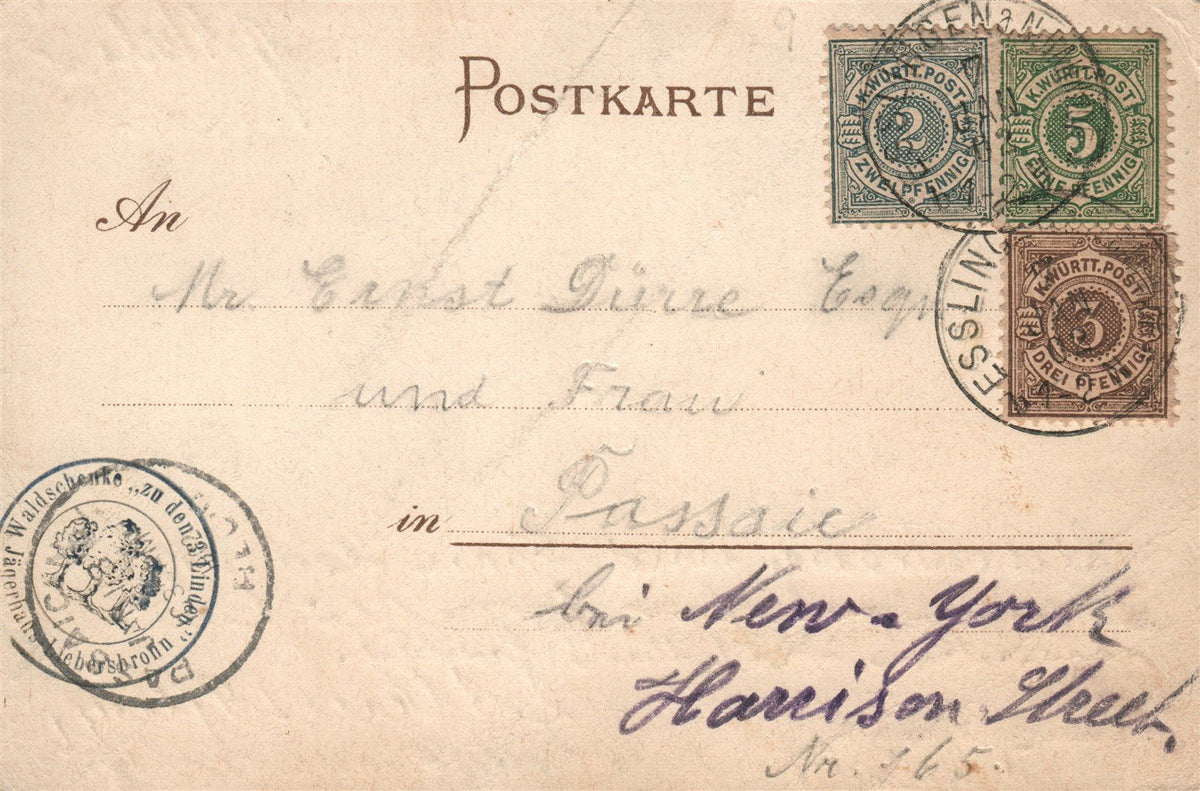 POSTKARTE
K. WÜRTT. POST
2
ZWEI PFENNIG
K. WÜRTT. POST
5
FÜNF PFENNIG
K. WÜRTT. POST
3
DREI PFENNIGE
ESSLINGEN
An
Mr Ernst Dürre Esqr
und Frau
in Passaic
bei New-York
Harrison Street.
Nr. 165.
Waldschenke „zu den 3 Linden“
Jägerhaus Liebersbronn
PASSAIC